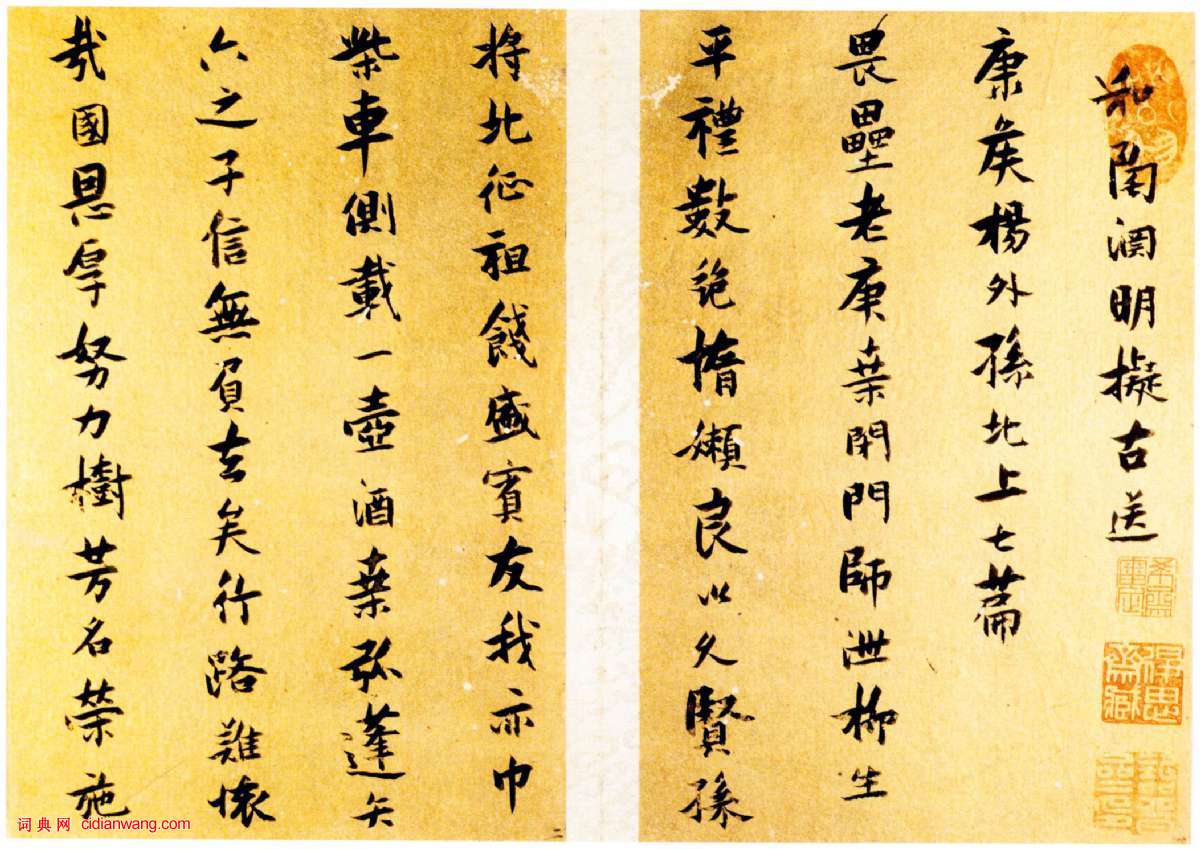 和陶渕明擬古送
康侯楊外孫北上七篇
畏壘老庚桒閉門師泄柳生
平禮數絶惰嬾良以久賢孫
將北征祖餞盛賓友我亦巾
柴車側載一壺酒桒弧蓬矢
六之子信無負去矣行路難懷
哉國恩厚努力樹芳名榮施
词典网 cidianwang.com